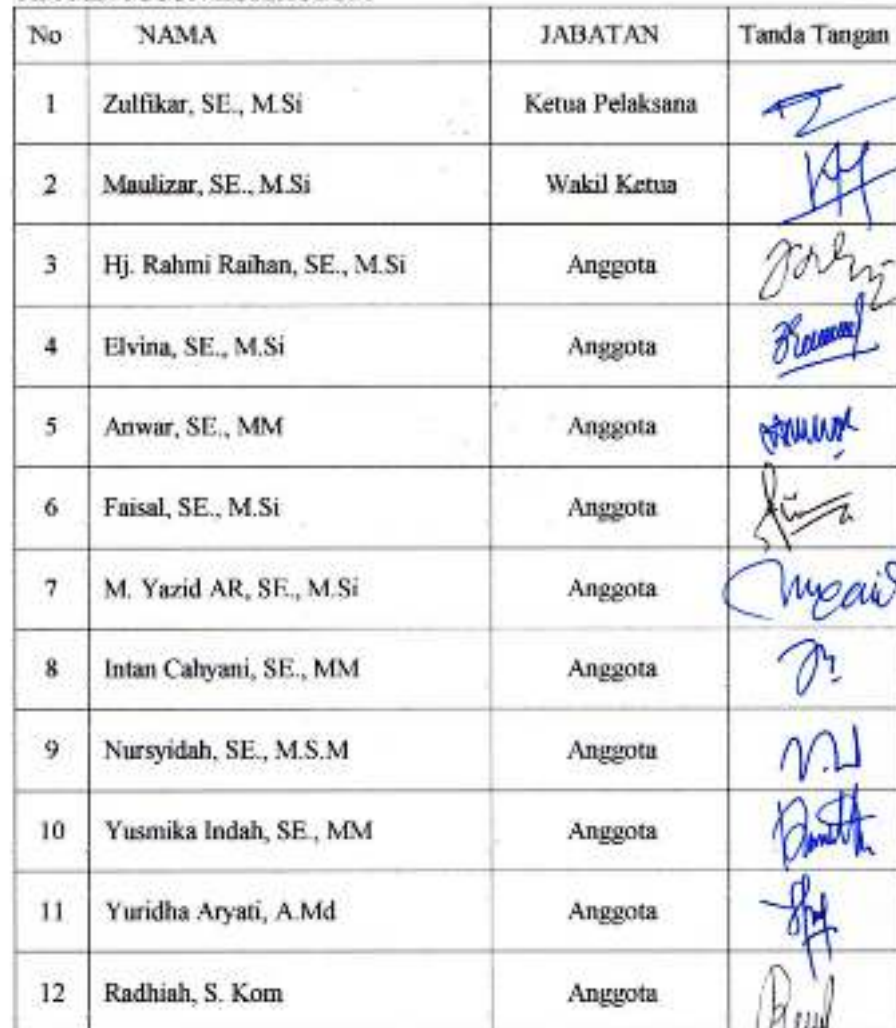 No NAMA JABATAN Tanda Tangan
1 Zulfikar, SE., M.Si Ketua Pelaksana
2 Maulizar, SE., M.Si Wakil Ketua
3 Hj. Rahmi Raihan, SE., M.Si Anggota
4 Elvina, SE., M.Si Anggota
5 Anwar, SE., MM Anggota
6 Faisal, SE., M.Si Anggota
7 M. Yazid AR, SE., M.Si Anggota
8 Intan Cahyani, SE., MM Anggota
9 Nursyidah, SE., M.S.M Anggota
10 Yusmika Indah, SE., MM Anggota
11 Yuridha Aryati, A.Md Anggota
12 Radhiah, S. Kom Anggota